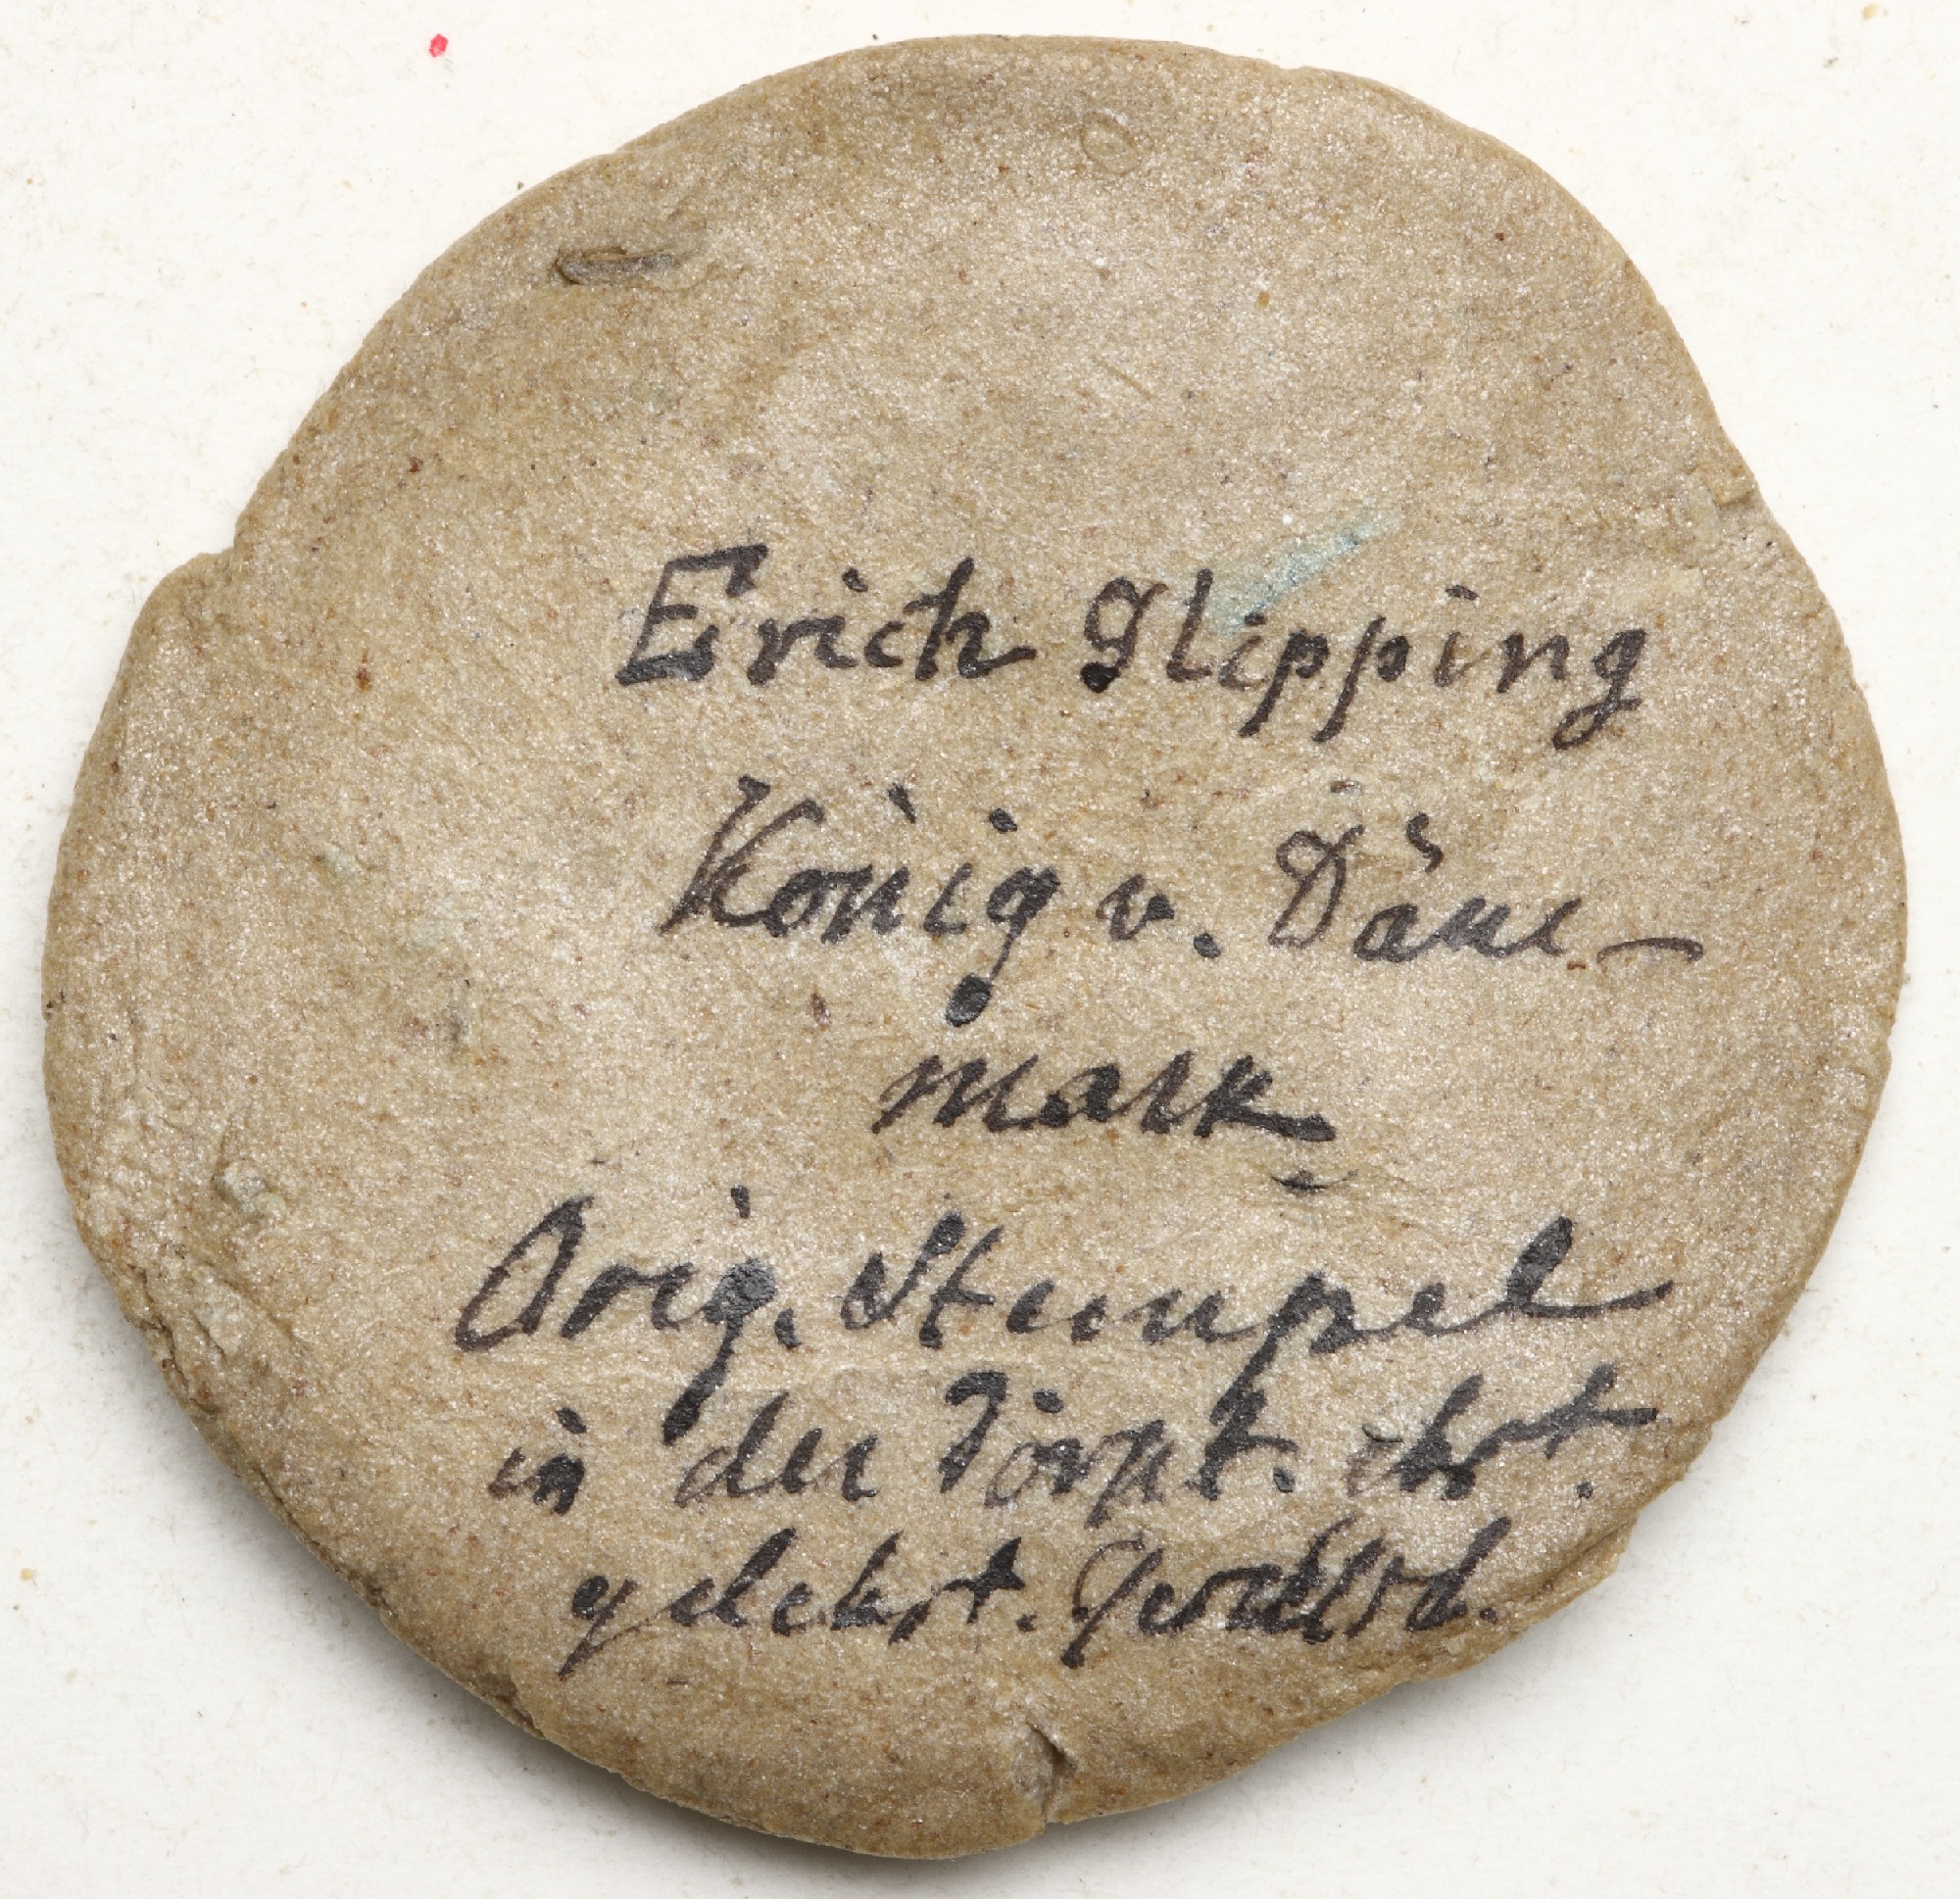 Erich Glipping
König v. Däne-
mark
Orig. Stempel
in der Dörpt. ehst.
gelehrt. Gesellsch.